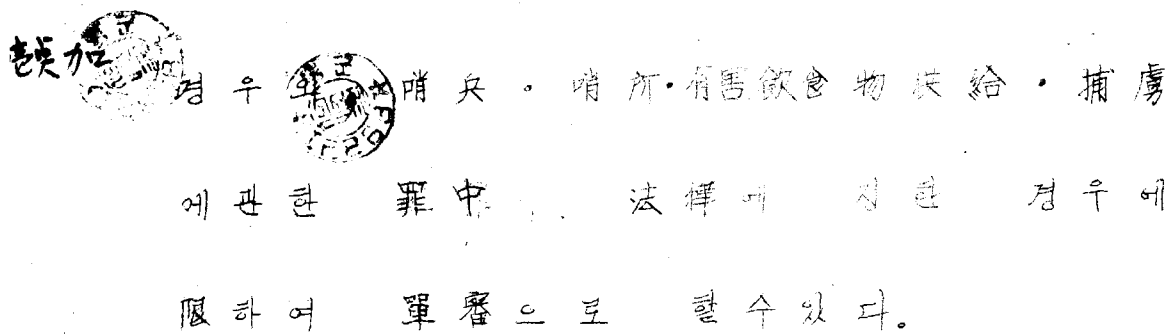 경우와 哨兵·哨所·有害飮食物供給·捕虜
에관한 罪中 法律에 정한 경우에
限하여 單審으로 할수있다。